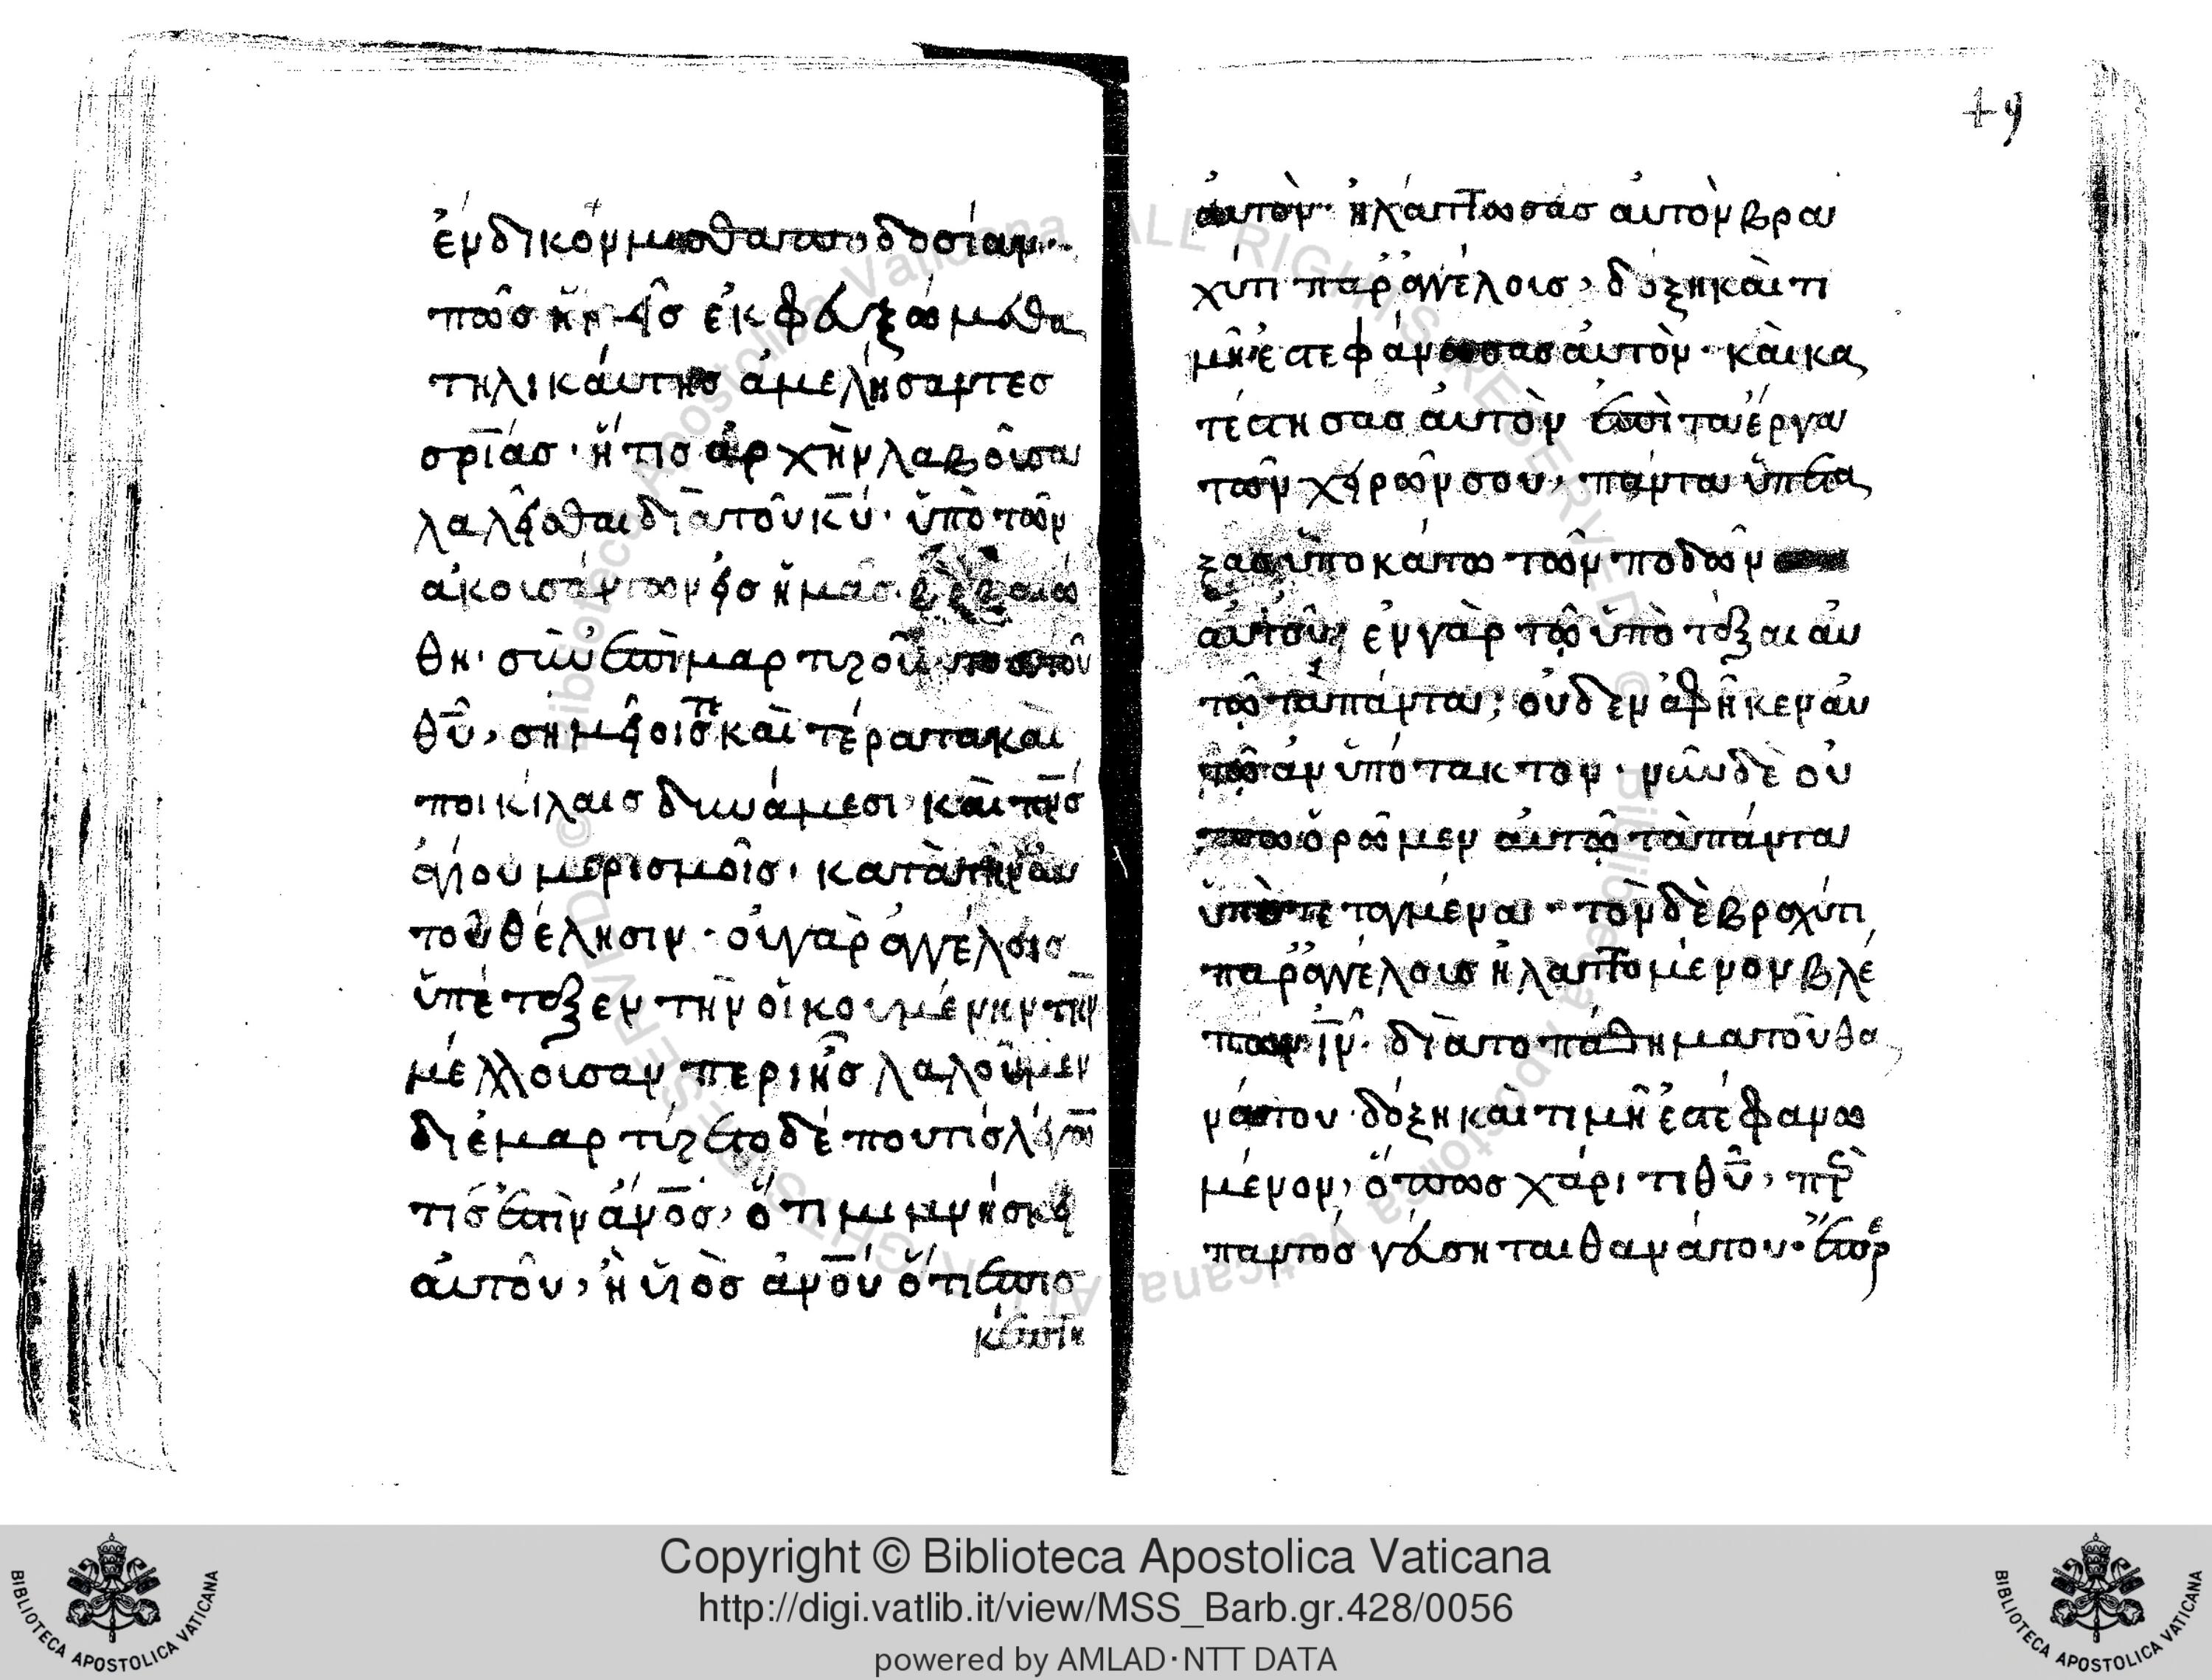 ἔνδικον μισθαποδοσίαν·
πῶς ἡμεῖς ἐκφευξώμεθα
τηλικαύτης ἀμελήσαντες
σρ̅ίας· ἥτις ἀρχὴν λαβοῦσα
λαλεῖσθαι διὰ τοῦ κ̅υ̅· ὑπὸ τῶν
ἀκουσάντων εἰς ἡμᾶς ἐβεβαιώ
θη· συνεπιμαρτυροῦντος τοῦ
θ̅υ̅, σημείοις τε καὶ τέρατα καὶ
ποικίλαις δυνάμεσι, καὶ π̅ν̅σ
ἁγίου μερισμοῖς· κατὰ τὴν αὐ
τοῦ θέλησιν· οὐ γὰρ ἀγγέλοις
ὑπέταξεν τὴν οἰκουμένην τὴν
μέλλουσαν περὶ ἧς λαλοῦμεν
διεμαρτύρετο δέ πού τις λέγων
τίς ἐστὶν ἄν̅ο̅ς, ὅτι μιμνήσκει
αὐτοῦ, ἢ υἱὸς ἀν̅ο̅υ ὅτι ἐπισ
κέπτη
αὐτόν· ἠλάττωσας αὐτὸν βρα
χύτι παρ' ἀγγέλοις, δόξη καὶ τι
μῆ ἐστεφάνωσας αὐτὸν· καὶ κα
τέστησας αὐτὸν ἐπὶ τα έργα
τῶν χειρῶν σου, πάντα ὑπετα
ξας ὑποκάτω τῶν ποδῶν
αὐτοῦ, ἐν γὰρ τῶ ὑποτάξαι αὐ
τῶ τὰ πάντα, οὐδὲν ἀφῆκεν αὐ
τῶ ἀνυπότακτον· νῦν δὲ οὔ
πω ὁρῶμεν αὐτῶ τὰ πάντα
ὑποτεταγμένα· τὸν δὲ βραχύτι
παρ' ἀγγέλοις ἠλαττομένον βλέ
πομεν ι̅ν̅· διὰ το πάθημα τοῦ θα
νάτου δόξη καὶ τιμῆ ἐστεφανω
μένον, ὅπως χάριτι θ̅υ̅, ὑπὲρ
παντὸς γεύσηται θανάτου· ἔπρ
Copyright © Biblioteca Apostolica Vaticana
http://digi.vatlib.it/view/MSS_Barb.gr.428/0056
powered by AMLAD·NTT DATA
BIBLIOTECA APOSTOLICA VATICANA
BIBLIOTECA APOSTOLICA VATICANA